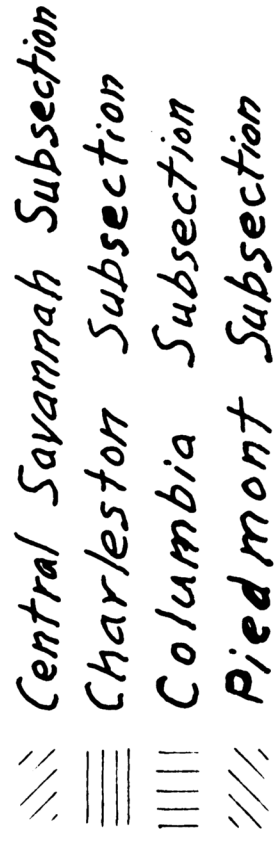 Central Savannah Subsection
Charleston Subsection
Columbia Subsection
Piedmont Subsection